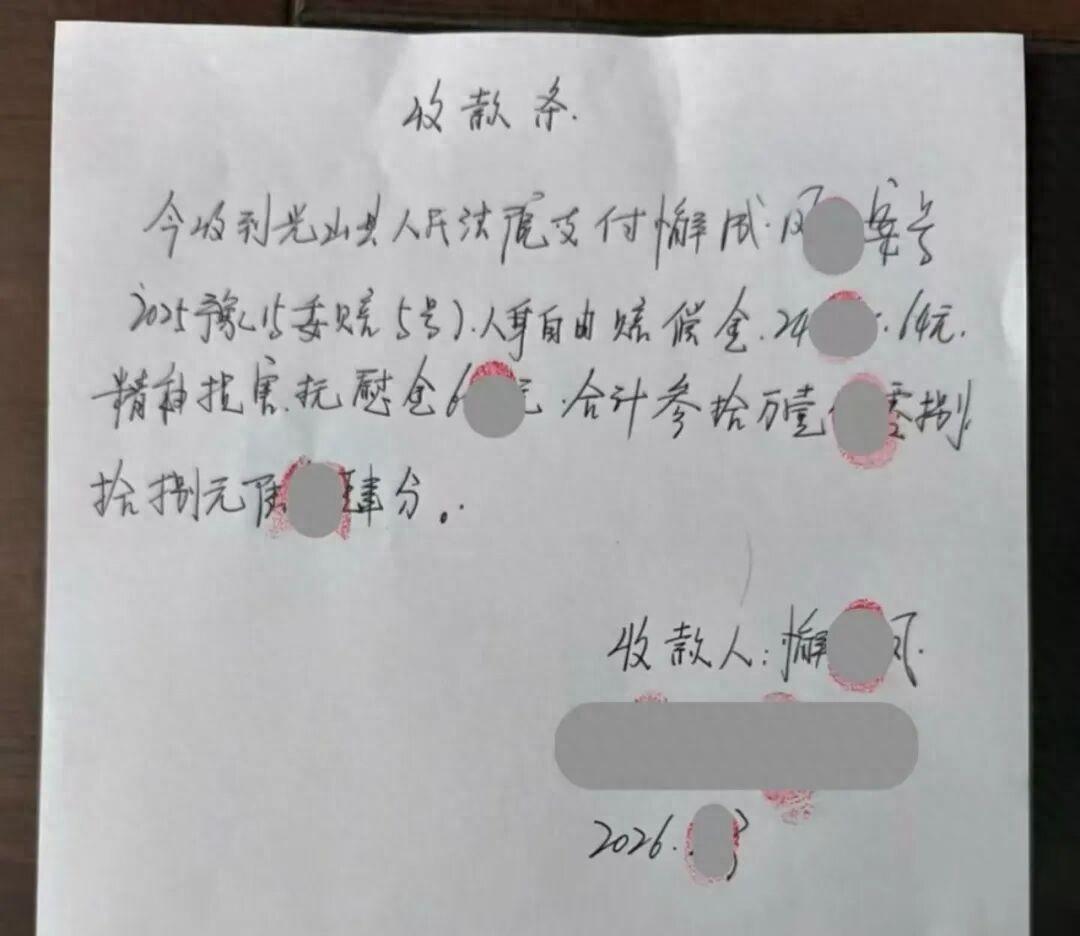 收款条.
今收到光山县人民法院支付懈成凤 案号
2025豫15委赔5号).人身自由赔偿金.24 .64元.
精神损害.抚慰金6 元.合计叁拾万壹 零捌
拾捌元陆 肆分.
收款人:懈 凤.
2026.